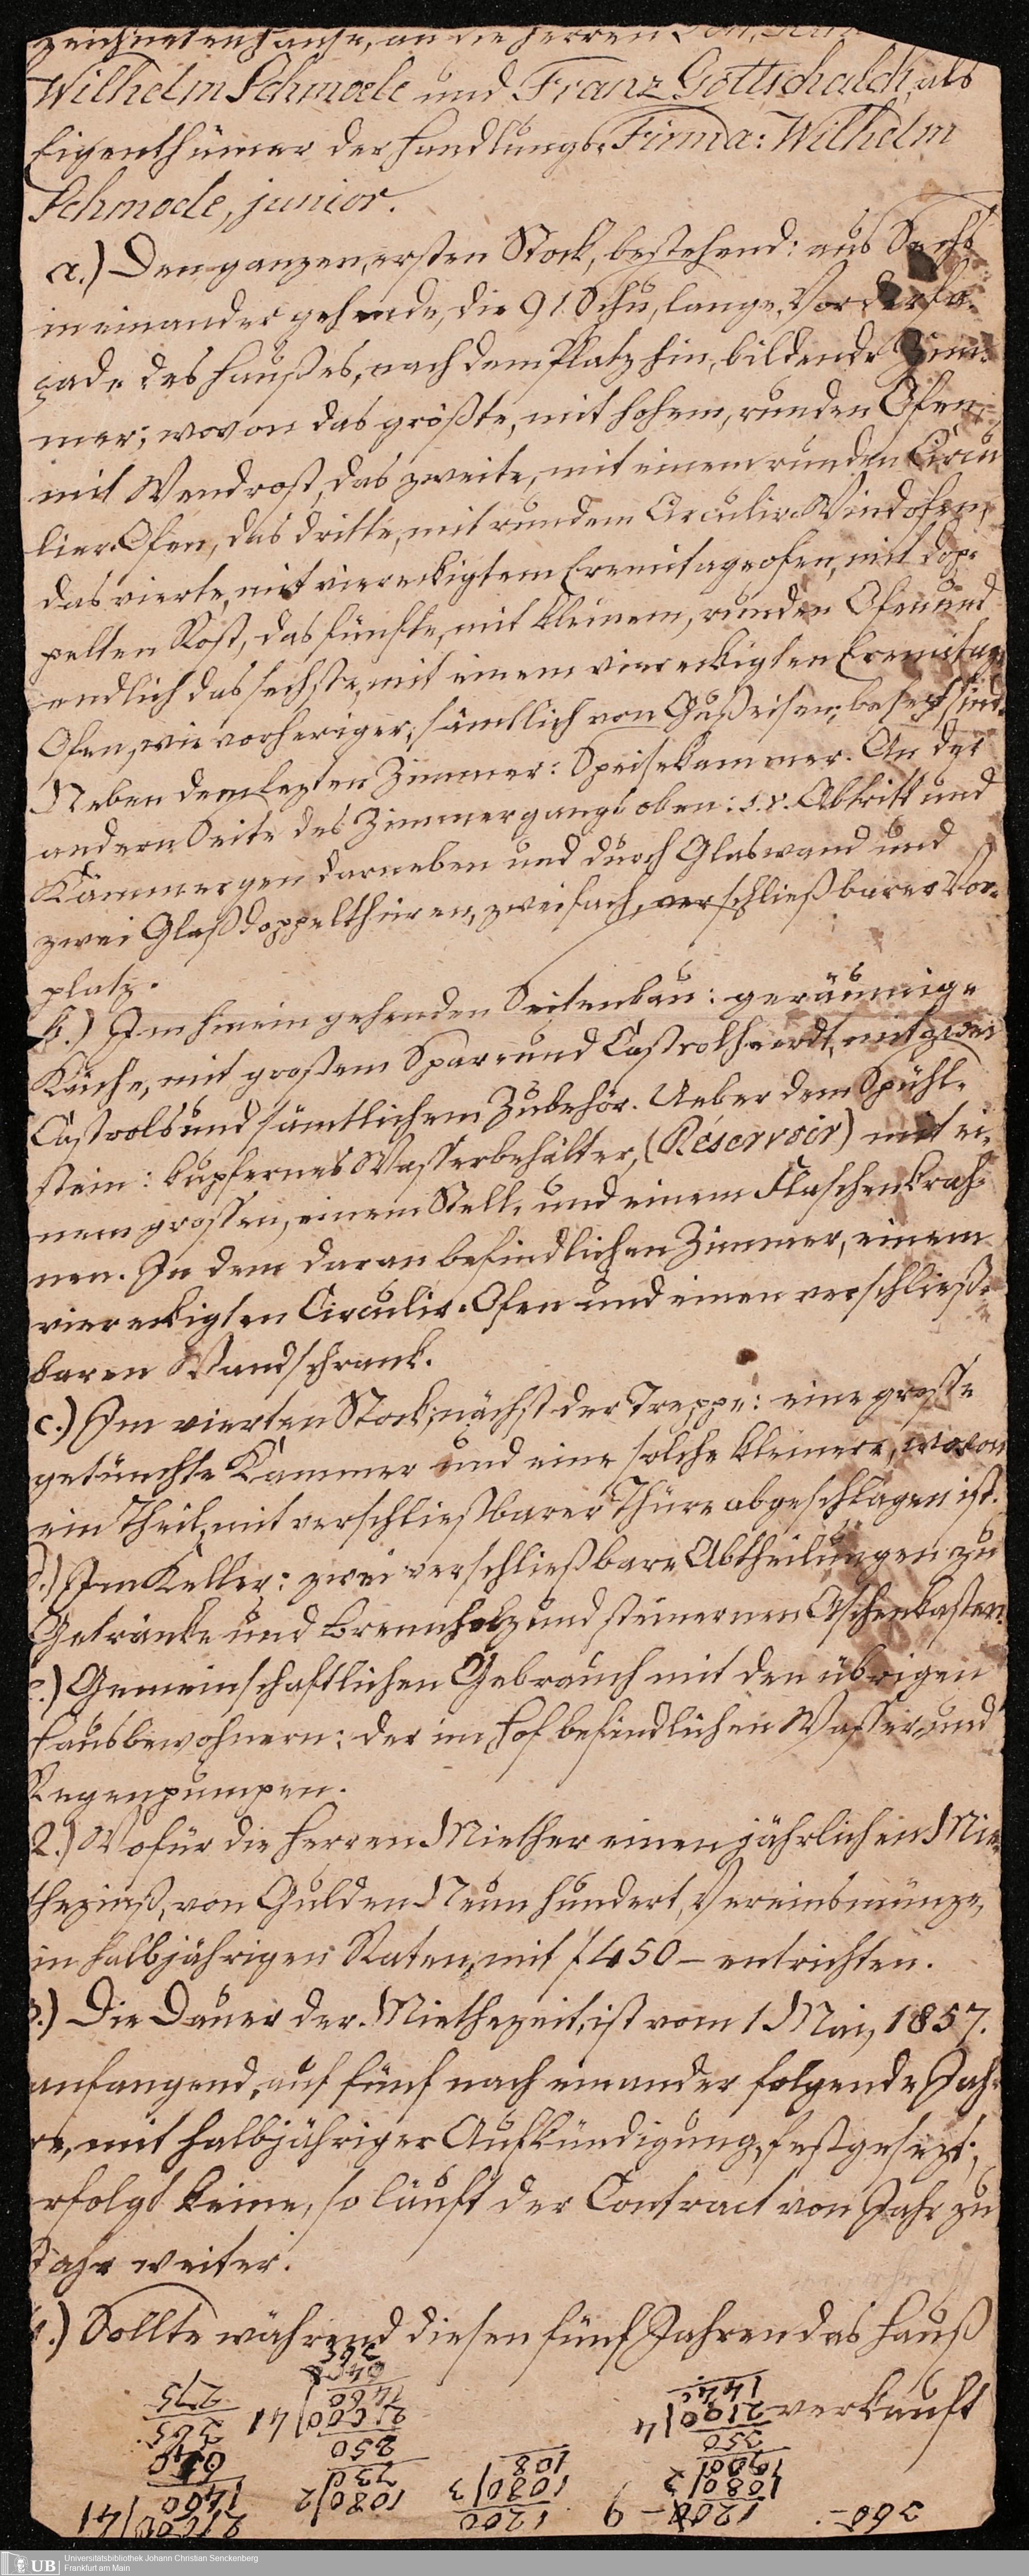 zeichneten Hause, an die Herren
Wilhelm Schmoele und Franz Gottschalch, als
Eigenthümer der Handlungs-Firma: Wilhelm
Schmoele, junior.
a.) Den ganzen, ersten Stock, bestehend: aus Sechs
in einander gehende, die 91 Schu, lange, Vorderfa-
çade des Haußes, nach dem Platz hin, bildende Zim-
mer; wovon das größte, mit hohem, runden Ofen,
mit Wendrost, das zweite, mit einem runden Circu
lier-Ofen, das dritte, mit rundem Circulir-Windofen,
das vierte, mit viereckigtem Eremitageofen, mit dop-
pelten Rost, das fünfte, mit kleinem, runden Ofen und
endlich das sechste, mit einem viereckigten Eremitage
Ofen, wie vorheriger, sämtlich von Gußeisen, besezt sind.
Neben dem lezten Zimmer: Speisekammer. An der
andern Seite des Zimmergangs oben: s.v. Abtritt und
Kämmergen darneben und durch Glaswand und
zwei Glaßdoppelthüren, zweifach, verschließbarer Vor-
platz.
b.) Im hinein gehenden Seitenbau: geräumige
Küche, mit großem Spar- und Castrolheerdt, mit zwei
Castrols und sämtlichem Zubehör. Ueber dem Spühl-
stein: kupfernes Wasserbehälter, (Réservoir) mit ei-
nem grossen, einem Stell, und einem Flaschenkrah-
nen. In dem daran befindlichen Zimmer, einem
viereckigten Circulir-Ofen und einen verschließ-
baren Wandschrank.
c.) Im vierten Stock, nächst der Treppe: eine grosse
getünchte Kammer und eine solche kleinere, wovon
ein Theil, mit verschließbarer Thüre abgeschlagen ist.
d.) Im Keller: zwei verschließbare Abtheilungen zu
Getränke und Brennholz und steinernen Aschenkasten.
e.) Gemeinschaftlichen Gebrauch mit den übrigen
Hausbewohnern: der im Hof befindlichen Wasser- und
Regenpumpen.
2.) Wofür die Herren Miether einen jährlichen Mie-
thezinß, von Gulden Neun hundert, Vereinsmünze,
in halbjährigen Raten, mit f 450 – entrichten.
3.) Die Dauer der Miethezeit, ist vom 1 Mai, 1857.
anfangend, auf fünf nach einander folgende Jah-
re, mit halbjähriger Aufkündigung, festgesezt;
erfolgt keine, so läuft der Contract von Jahr zu
Jahr weiter.
4.) Sollte während diesen fünf Jahren das Hauß
verkauft
1200
1080/3
108
1080/2
730
250
UB Universitätsbibliothek Johann Christian Senckenberg
Frankfurt am Main